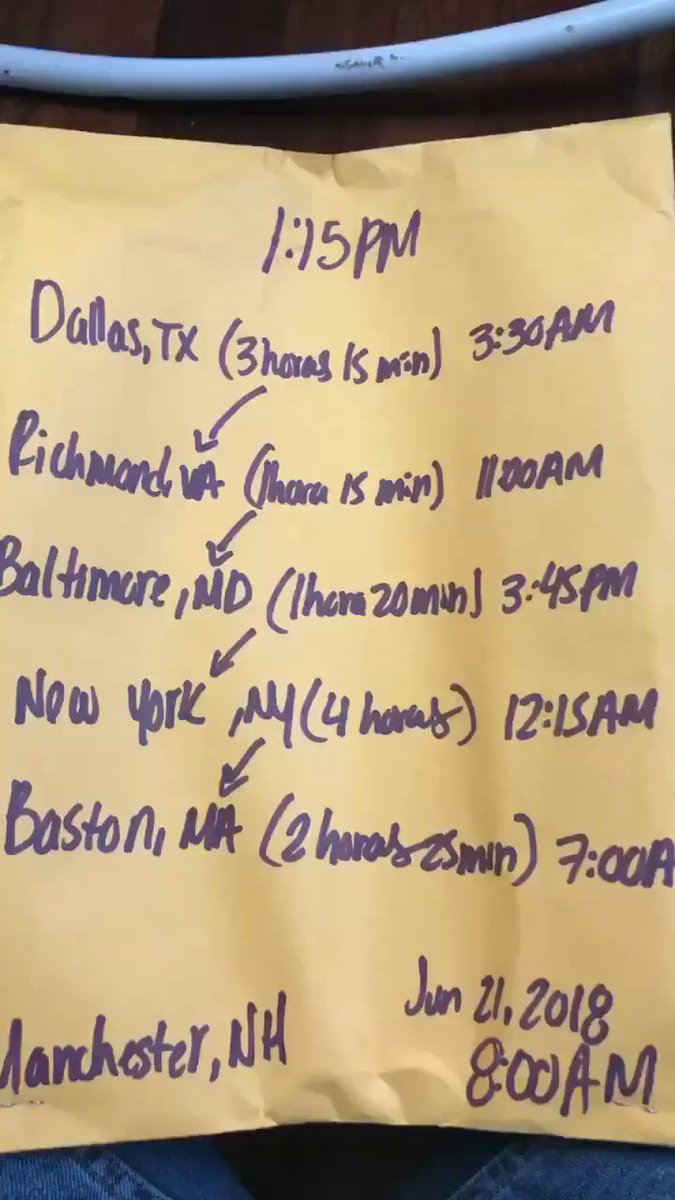 1:15PM
Dallas, TX (3 horas 15 min) 3:30AM
Richmond, VA (1 hora 15 min) 11:00AM
Baltimore, MD (1 hora 20 min) 3:45PM
New York, NY (4 horas) 12:15AM
Baston, MA (2 horas 25 min) 7:00A
Manchester, NH
Jun 21, 2018
8:00AM